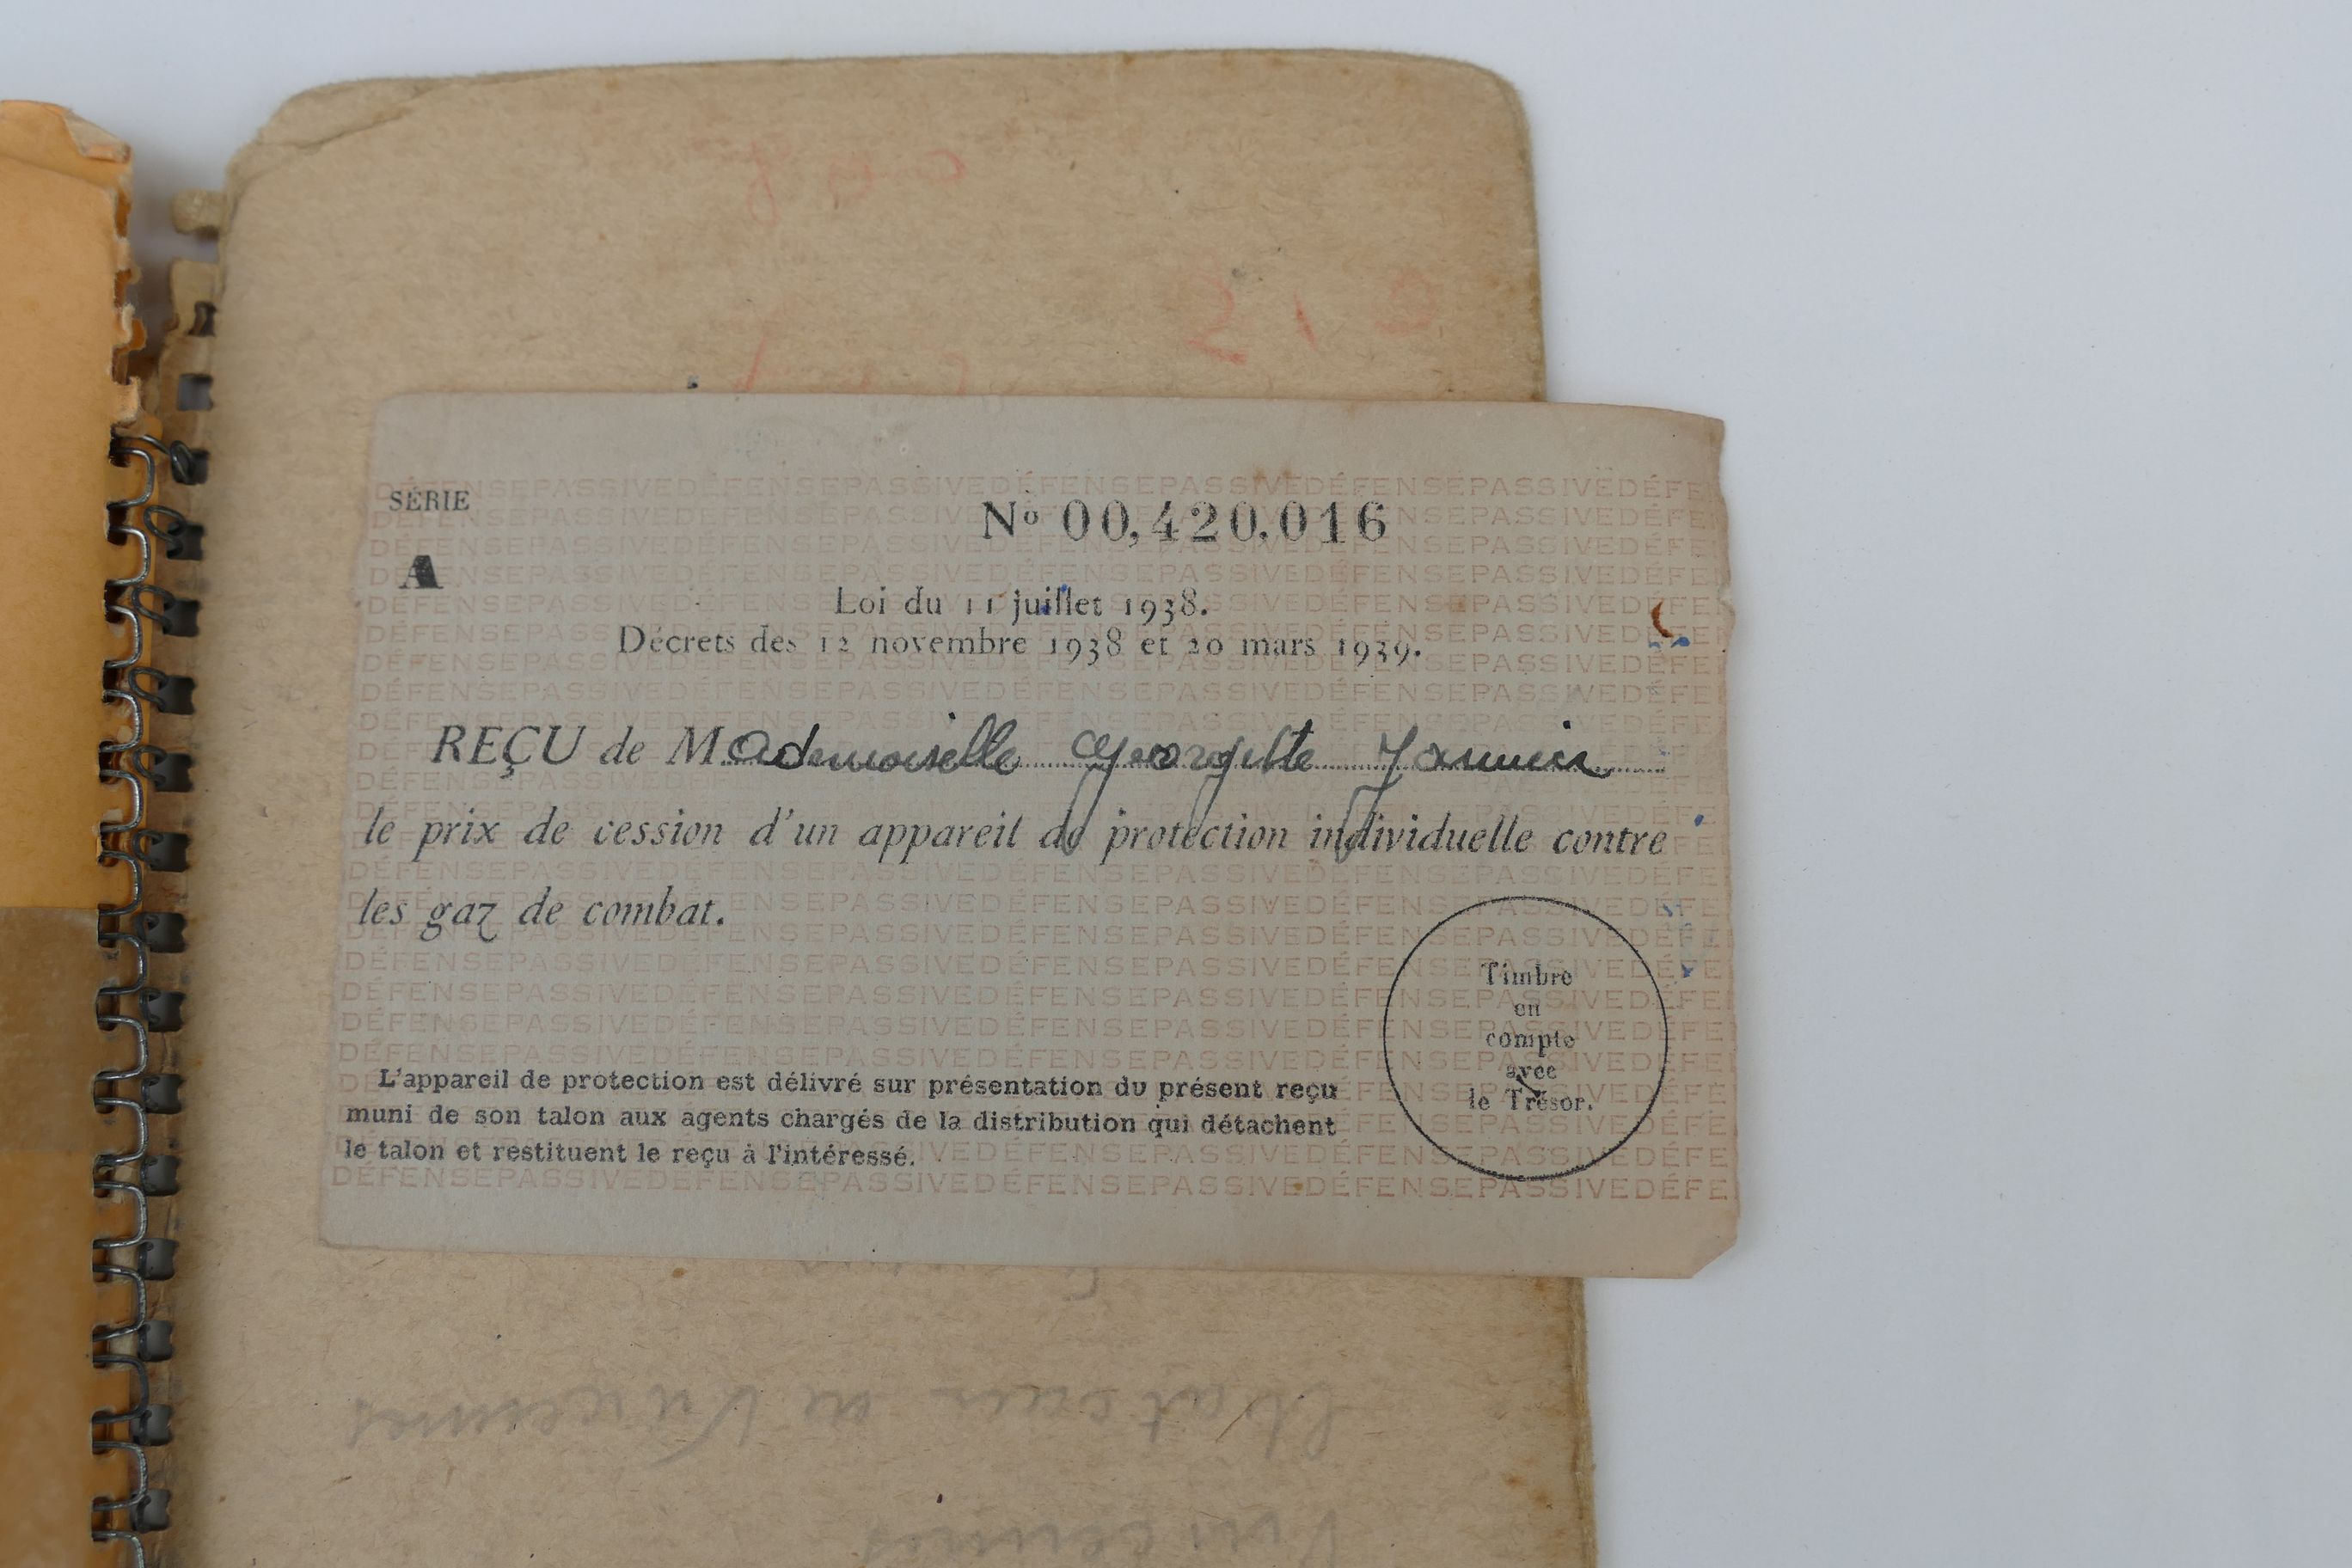 SÉRIE
A
N° 00,420,016
Loi du 11 juillet 1938.
Décrets des 12 novembre 1938 et 20 mars 1939.
REÇU de Mademoiselle Georgette Jannin
le prix de cession d'un appareil de protection individuelle contre
les gaz de combat.
Timbre
en
compte
avec
le Trésor.
L'appareil de protection est délivré sur présentation du présent reçu
muni de son talon aux agents chargés de la distribution qui détachent
le talon et restituent le reçu à l'intéressé.
DÉFENSEPASSIVEDÉFENSEPASSIVEDÉFENSEPASSIVEDÉFENSEPASSIVEDÉFE
Vincennes
Vincennes